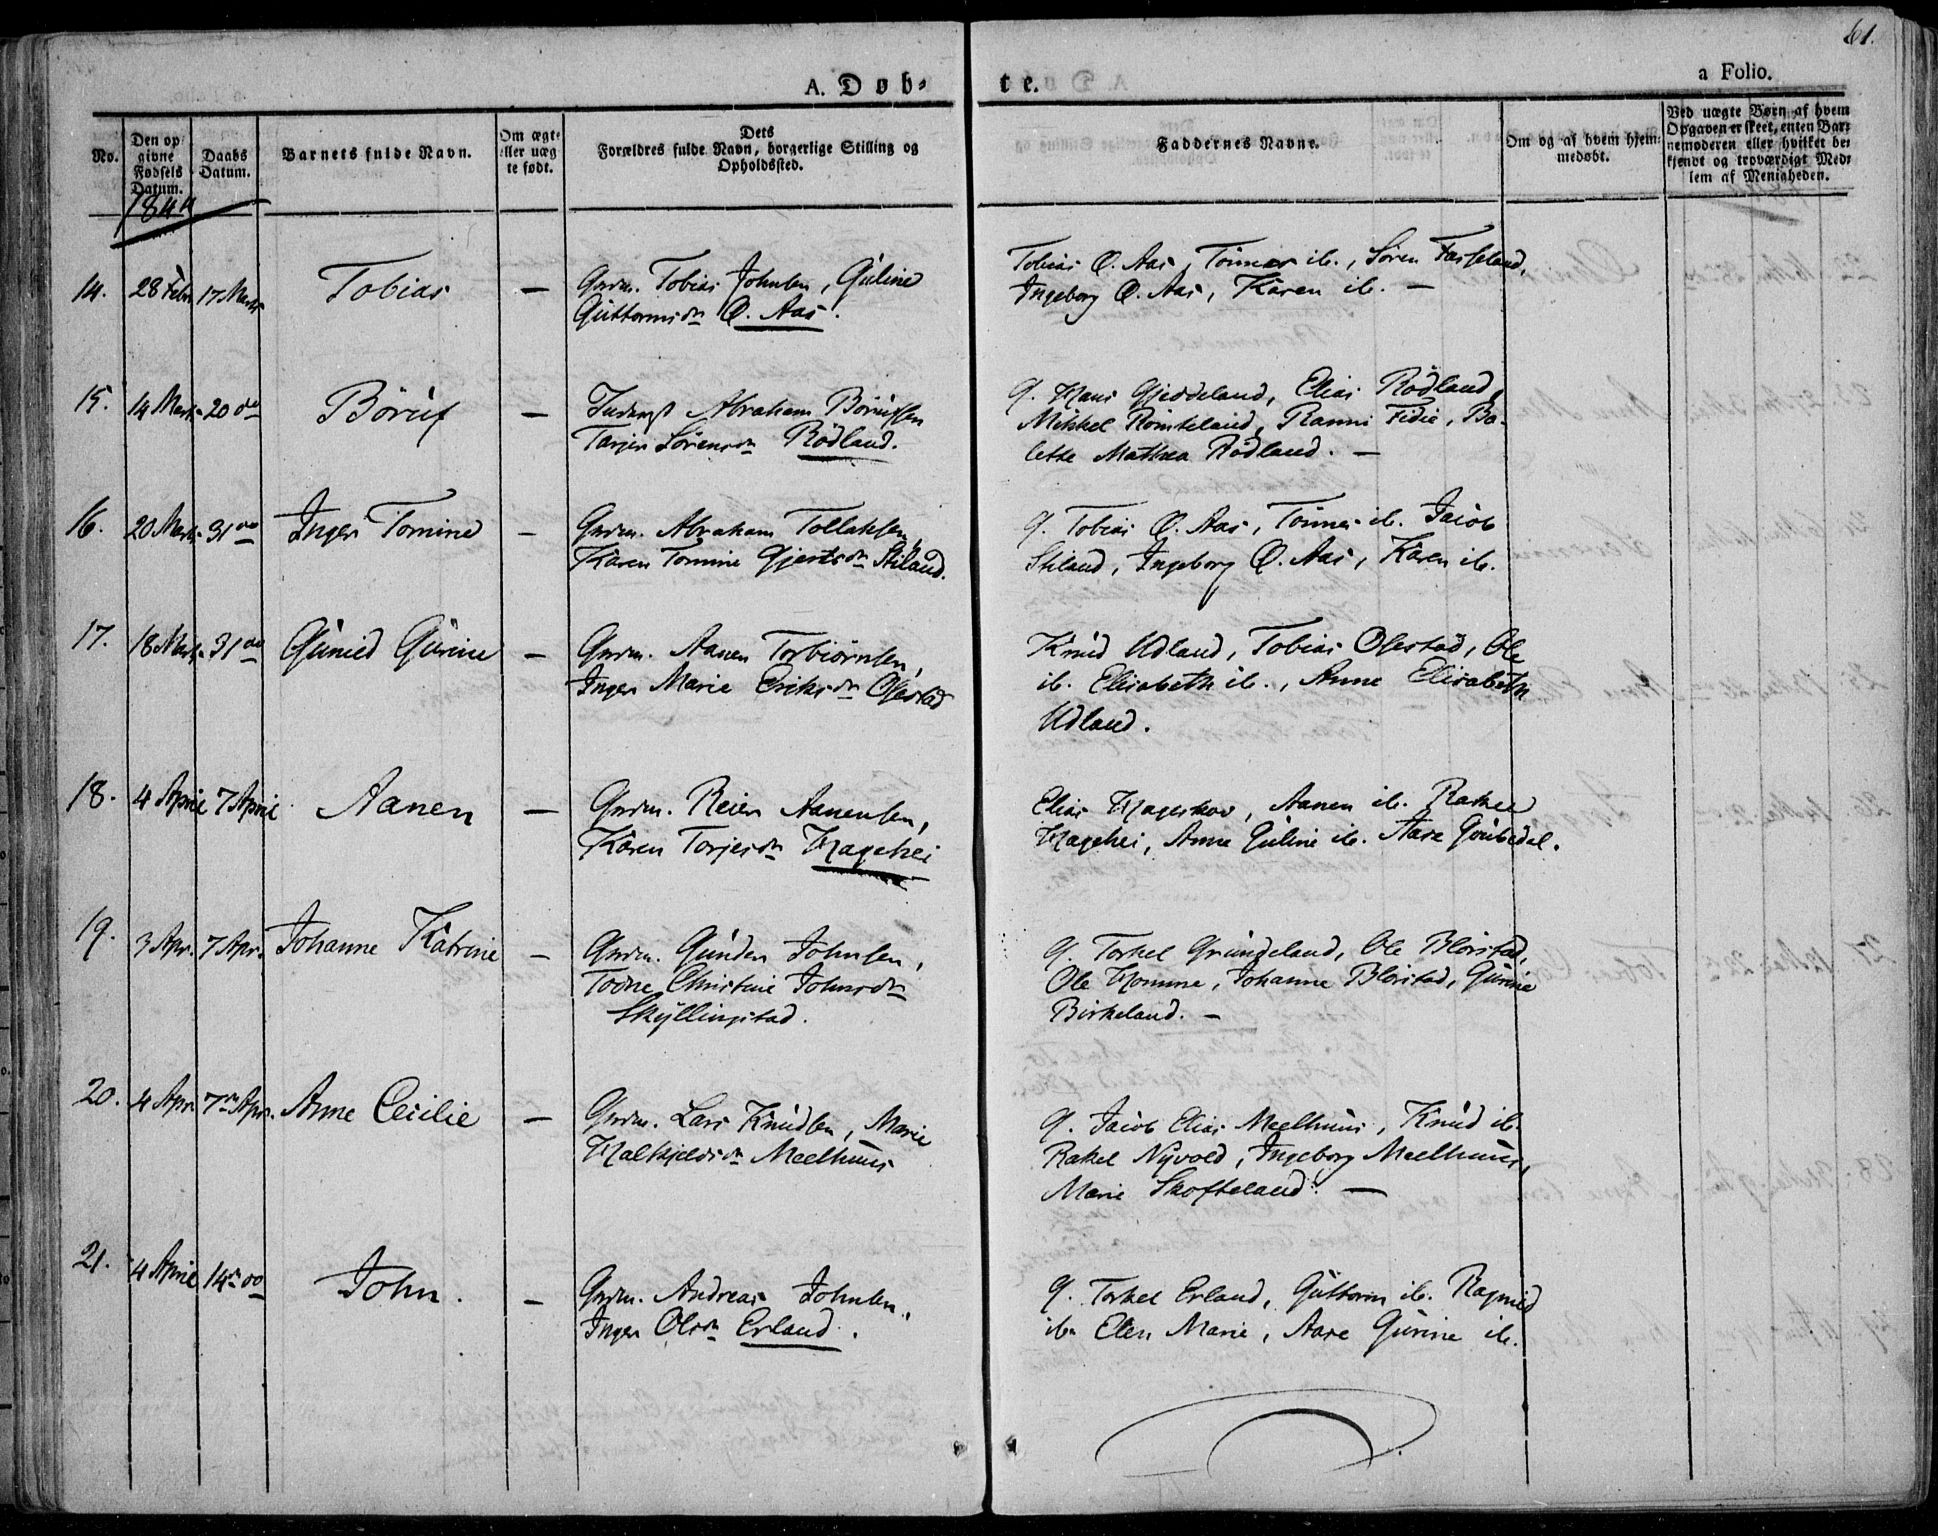 61.
A. Døb-
te.
a Folio.
No.
Den op
givne
Fødsels
Datum.
Daabs
Datum.
Barnets fulde Navn.
Om ægte
eller uæg
te født.
Dets
Forældres fulde Navn, borgerlige Stilling og
Opholdssted.
Faddernes Navne.
Om og af hvem hjem-
medøbt.
Ved uægte Børn af hvem
Opgaven er skeet, enten Bar-
nemoderen eller hvilket be-
kjendt og troværdigt Med-
lem af Menigheden.
1844
14. 28 Febr 17 Marts Tobias — Grdm. Tobias Johnsen, Guline
Guttormsdr Ø. Aas.
Tobias Ø. Aas, Tønnes ib., Søren Fasseland,
Ingeborg Ø. Aas, Karen ib. —
15. 14 Marts 20 do Børuf — Inderst Abraham Børufsen
Tarjer Sørensdr Rødland.
q. Hans Gjeddeland, Elias Rødland,
Mikkel Romteland, Ranni Fidie, Bo-
lette Mathea Rødland. —
16. 20 Marts 31 do Inger Tomine — Grdm. Abraham Tollaksen,
Karen Tomine Gjertsdr Stiland.
q. Tobias Ø. Aas, Tønnes ib. Jacob
Stiland, Ingeborg Ø. Aas, Karen ib.
17. 18 Marts 31 do Gunild Gurine — Grdm. Aanen Torbiørnsen,
Inger Marie Eriksdr Ofestad
Knud Udland, Tobias Ofestad, Ole
ib. Elisabeth ib., Anne Elisabeth
Udland.
18. 4 April 7 April Aanen — Grdm. Reier Aanensen,
Karen Torjesdr Hagehei
Elias Hageskov, Aanen ib. Rakel
Hagehei, Anne Guline ib. Aase Goubedal.
19. 3 Apr. 7 Apr. Johanne Katrine — Grdm. Gunder Johnsen,
Todne Christine Johnsdr
Skyllingstad.
q. Torkel Grundeland, Ole Blørstad,
Ole Homme, Johanne Blørstad, Gurine
Birkeland. —
20. 4 Apr 7de Apr. Anne Cecilie — Grdm. Lars Knudsen, Marie
Halkjeldsdr Meelhuus
q. Jacob Elias Meelhuus, Knud ib.
Rakel Nyvold, Ingeborg Meelhuus,
Marie Skofteland. —
21. 4 April 14de do John. — Grdm. Andreas Johnsen,
Inger Olsdr Erland.
q. Torkel Erland, Guttorm ib. Ragnild
ib. Elen Marie, Aase Gurine ib.